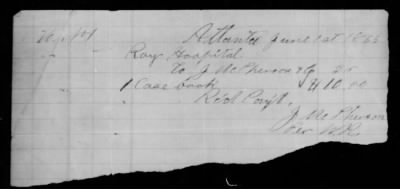 Atlanta June 1st 186
Ray Hospital
To J McPherson & Co Dr
1 Case book $10.00
Recd Payt.
J McPherson
Per